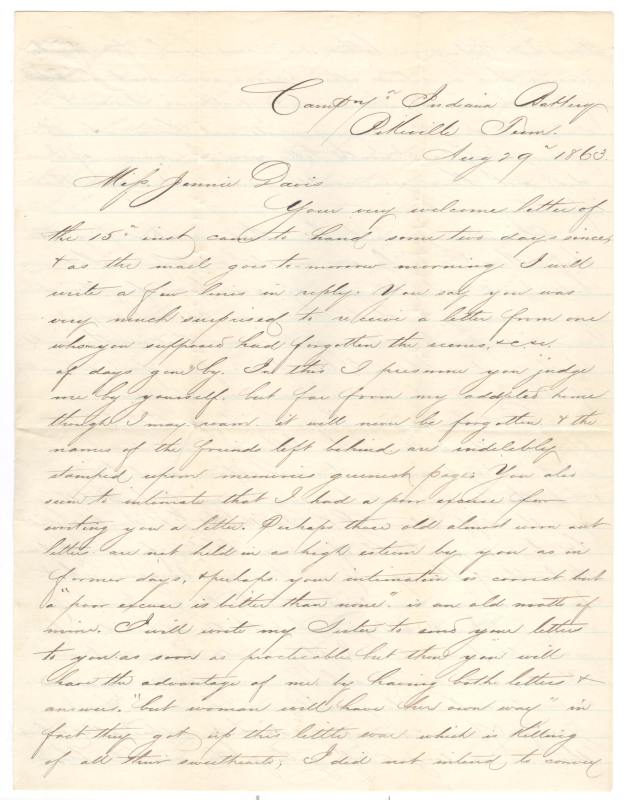 Camp 7" Indiana Battery
Pikeville Tenn.
Aug 29" 1863.
Miss. Jennie Davis
Your very welcome letter of
the 15" inst came to hand some two days since,
& as the mail goes to-morrow morning I will
write a few lines in reply. You say you was
very much surprised to receive a letter from one
whom you supposed had forgotten the scenes, &c &c.
of days gone by. In this I presume you judge
me by yourself. but far from my adopted home
though I may roam it will never be forgotten & the
names of the friends left behind are indelebly
stamped upon memories greenest page. You also
seem to intimate that I had a poor excuse for
writing you a letter. Perhaps those old almost worn out
letters are not held in as high esteem by you as in
former days, & perhaps your intimation is correct but
a "poor excuse is better than none". is an old motto of
mine. I will write my Sister to send your letters
to you as soon as practicable but then you will
have the advantage of me by having both letters &
answers. "but woman will have her own way" in
fact they got up this little war which is killing
of all their sweethearts, I did not intend to convey